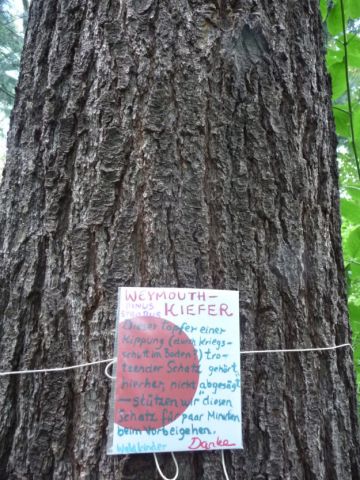 WEYMOUTH-
PINUS
STROBUS KIEFER
Dieser tapfer einer
Kippung (durch Kriegs-
schutt im Boden?) tro-
tzender Schatz gehört
hierher, nicht "abgesägt"
– stützen wir diesen
Schatz für paar Minuten
beim Vorbeigehen.
Waldkinder Danke